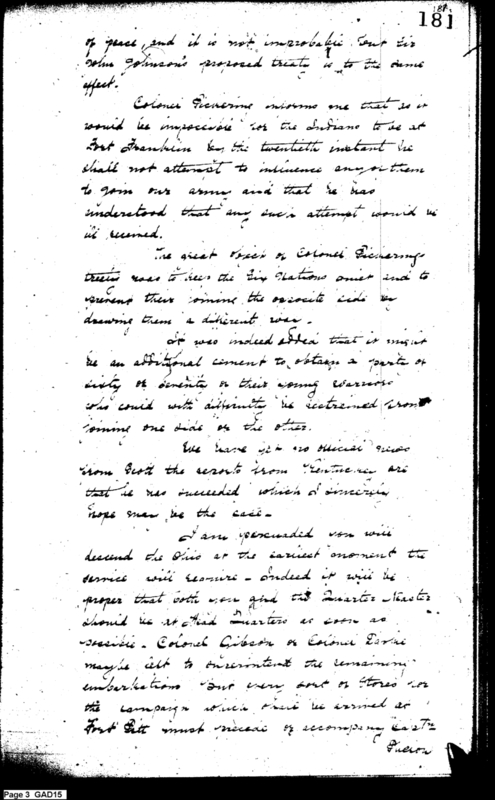 181
181
of peace, and it is not improbable but Sir
John Johnson's proposed treaty is to the same
effect.
Colonel Pickering informs me that as it
would be impossible for the Indians to be at
Fort Franklin by the twentieth instant he
shall not attempt to influence any of them
to join our army and that he has
understood that any such attempt would be
ill received.
The great object of Colonel Pickerings
treaty was to keep the Six Nations quiet and to
prevent their joining the opposite side by
drawing them a different way.
It was indeed added that it might
be an additional cement to obtain a party of
sixty or seventy of their young warriors
who could with difficulty be restrained from
joining one side or the other.
We have yet no official news
from Scott the reports from Kentucky are
that he has succeeded which I sincerely
hope may be the case -
I am persuaded you will
descend the Ohio at the earliest moment the
service will require - Indeed it will be
proper that both you and the Quarter Master
should be at Head Quarters as soon as
possible - Colonel Gibson or Colonel Darke
may be left to superintend the remaining
embarkations but every sort of Stores for
the campaign which shall be arrived at
Fort Pitt must precede or accompany
Page 3 GAD15